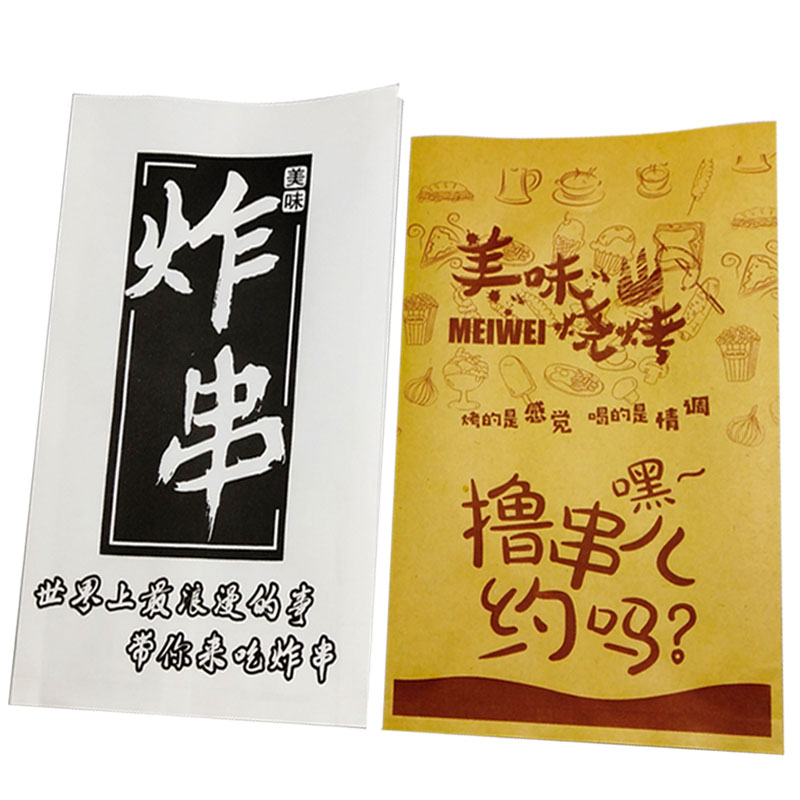 美味
炸串
世界上最浪漫的事
带你来吃炸串
美味
MEIWEI 烧烤
烤的是感觉 喝的是情调
嘿~
撸串儿
约吗?